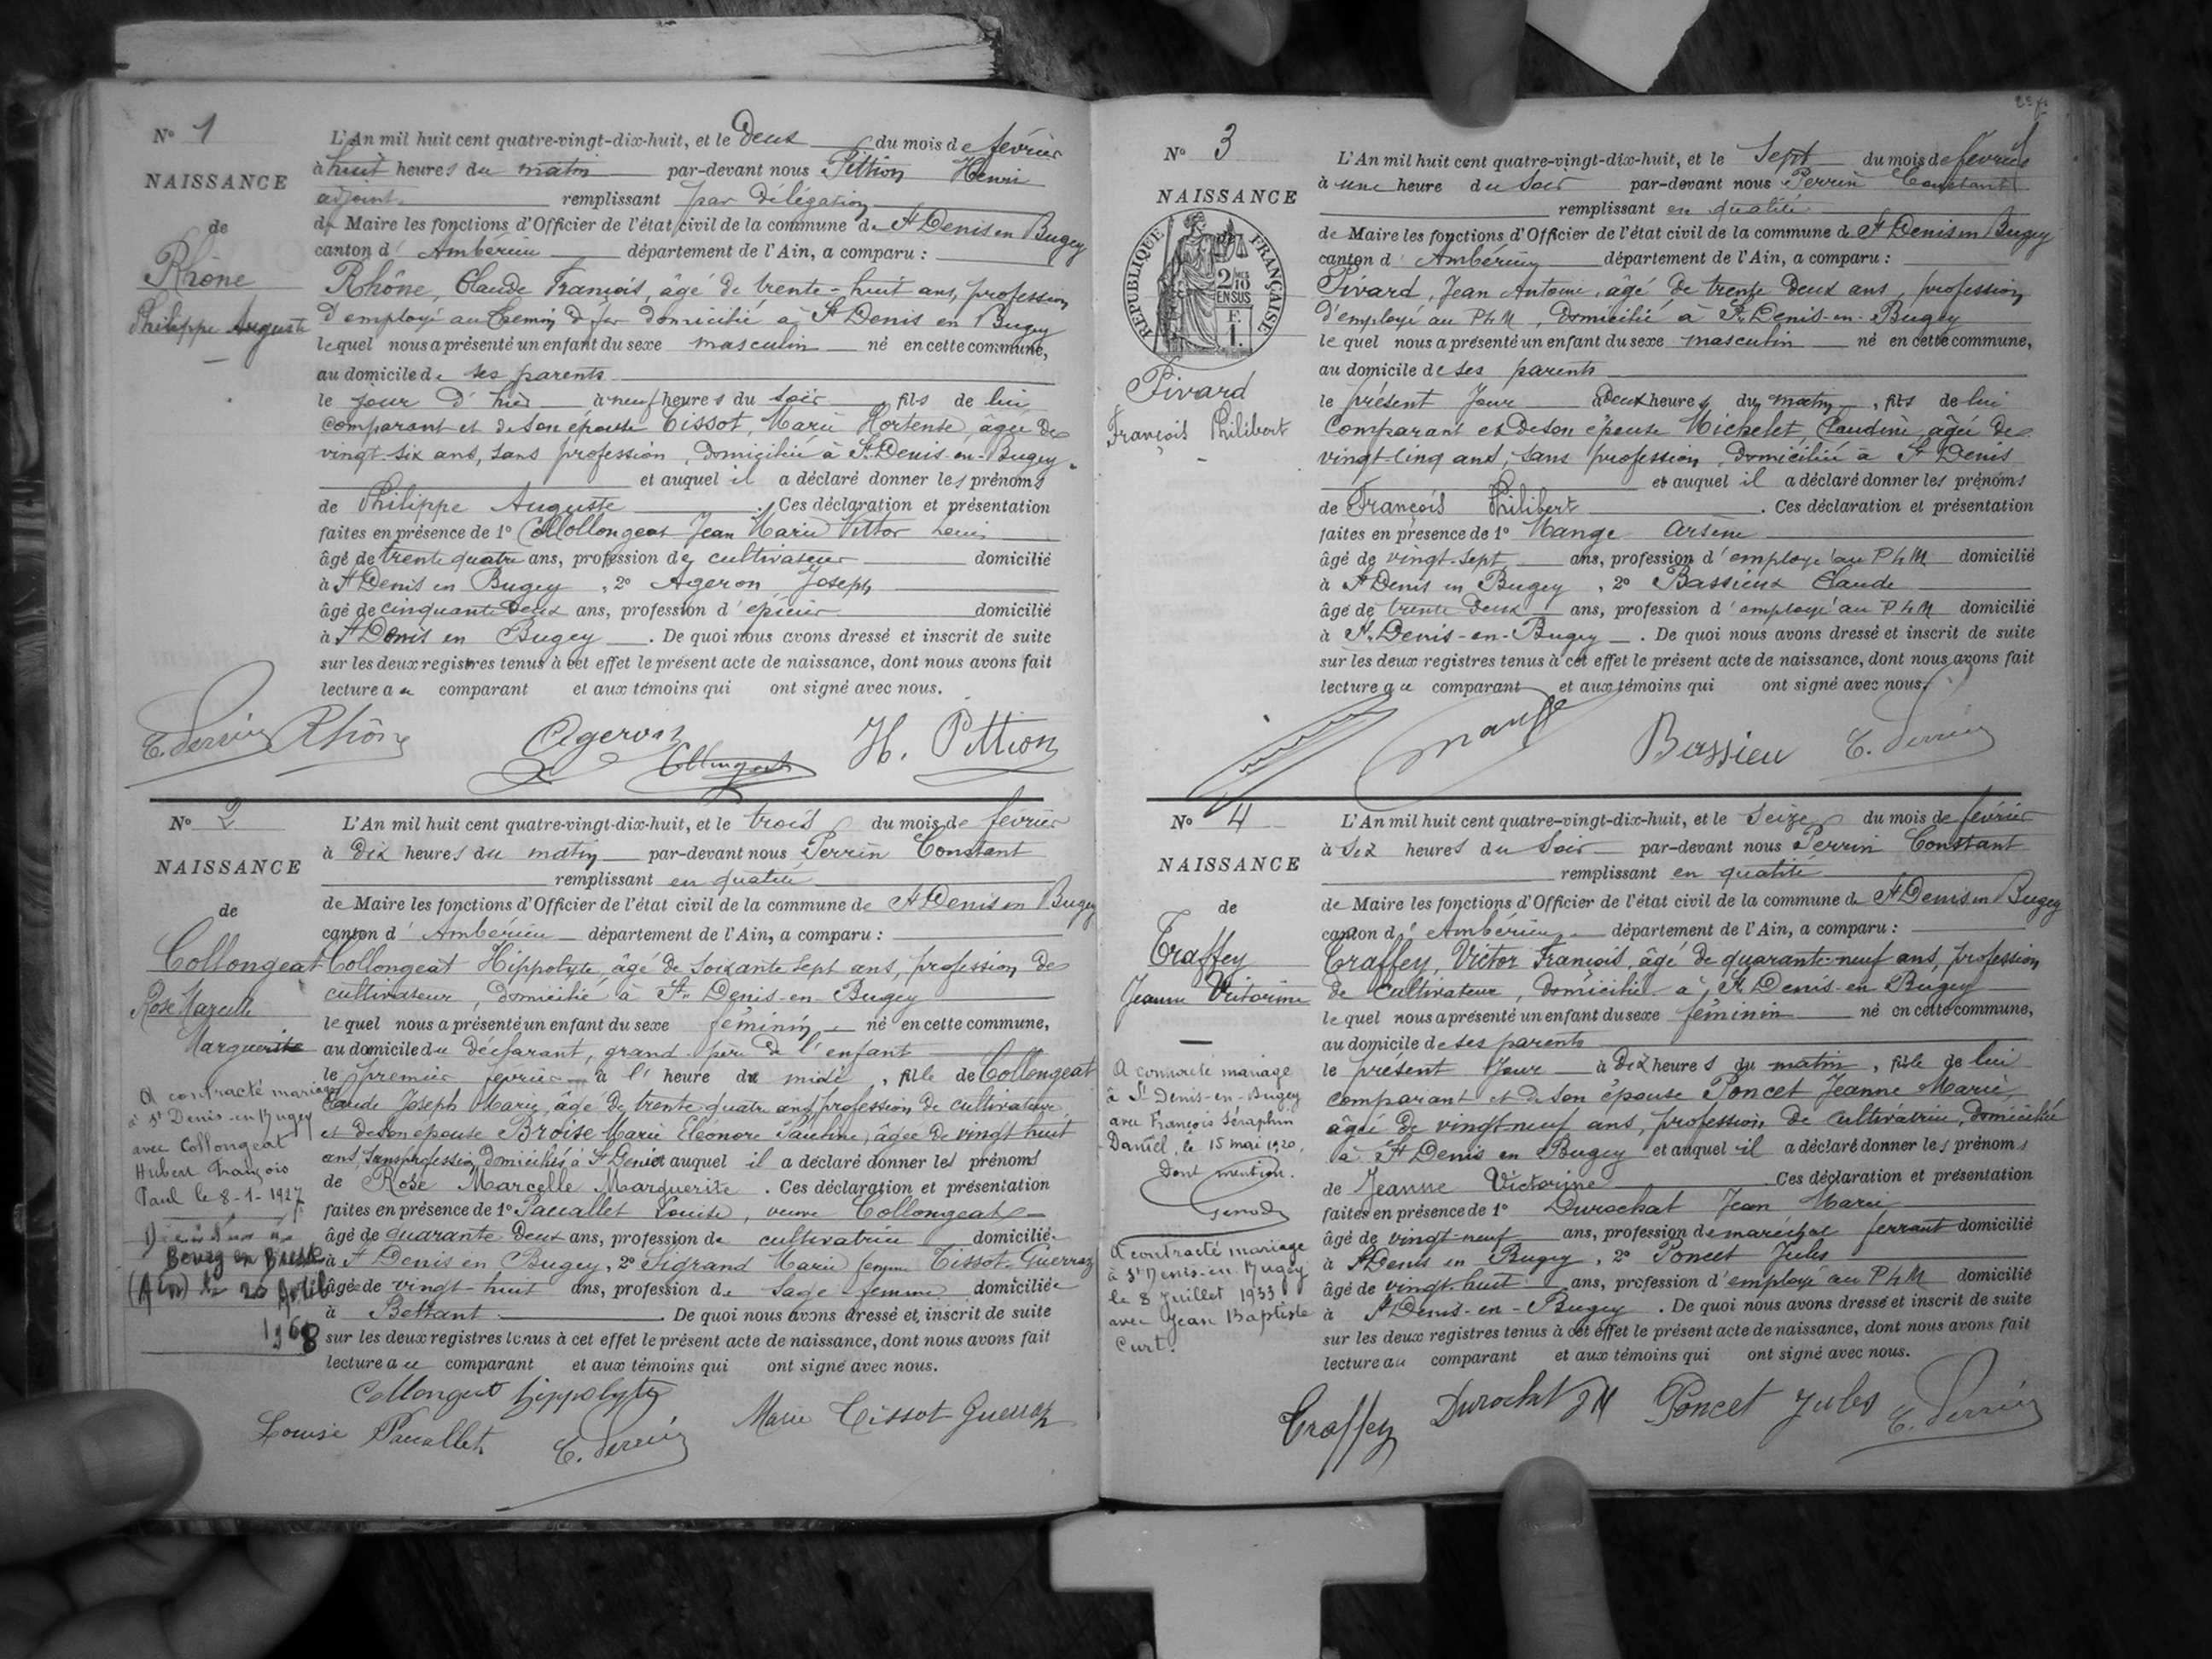 N° 1
NAISSANCE
de
Rhône
Philippe Auguste
L'An mil huit cent quatre-vingt-dix-huit, et le deux du mois de février
à huit heures du matin par-devant nous Pittion Henri
adjoint remplissant par délégation
de Maire les fonctions d'Officier de l'état civil de la commune de St Denis en Bugey
canton d'Ambérieu département de l'Ain, a comparu :
Rhône, Claude François, âgé de trente-huit ans, profession
d'employé au chemin de fer domicilié à St Denis en Bugey
lequel nous a présenté un enfant du sexe masculin né en cette commune,
au domicile de ses parents
le jour d'hier à neuf heures du soir fils de lui
comparant et de son épouse Tissot, Marie Hortense, âgée de
vingt-six ans, sans profession, domiciliée à St Denis-en-Bugey.
et auquel il a déclaré donner les prénoms
de Philippe Auguste. Ces déclaration et présentation
faites en présence de 1° Collongeat Jean Marie Victor Louis
âgé de trente quatre ans, profession de cultivateur domicilié
à St Denis en Bugey, 2° Ageron Joseph
âgé de cinquante deux ans, profession d'épicier domicilié
à St Denis en Bugey. De quoi nous avons dressé et inscrit de suite
sur les deux registres tenus à cet effet le présent acte de naissance, dont nous avons fait
lecture au comparant et aux témoins qui ont signé avec nous.
C. Perrin Rhône Ageron Collongeat H. Pittion
N° 2
NAISSANCE
de
Collongeat
Rose Marcelle
Marguerite
A contracté mariage
à St Denis-en-Bugey
avec Collongeat
Hubert François
Paul le 8-1-1927
Bourg en Bresse
(Ain) le 20
1968
L'An mil huit cent quatre-vingt-dix-huit, et le trois du mois de février
à dix heures du matin par-devant nous Perrin Constant
remplissant en qualité
de Maire les fonctions d'Officier de l'état civil de la commune de St Denis en Bugey
canton d'Ambérieu département de l'Ain, a comparu :
Collongeat Hippolyte, âgé de soixante sept ans, profession de
cultivateur, domicilié à St Denis-en-Bugey
lequel nous a présenté un enfant du sexe féminin né en cette commune,
au domicile du déclarant, grand-père de l'enfant
le premier février à l'heure de midi, fille de Collongeat
Claude Joseph Marie, âgé de trente quatre ans, profession de cultivateur
et de son épouse Broise Marie Eléonore Pauline, âgée de vingt huit
ans, sans profession, domiciliés à St Denis et auquel il a déclaré donner les prénoms
de Rose Marcelle Marguerite. Ces déclaration et présentation
faites en présence de 1° Paccallet Louise, veuve Collongeat
âgé de quarante deux ans, profession de cultivatrice domiciliée
à St Denis en Bugey, 2° Sigrand Marie femme Tissot-Guerraz
âgée de vingt-huit ans, profession de sage femme domiciliée
à Bettant. De quoi nous avons dressé et inscrit de suite
sur les deux registres tenus à cet effet le présent acte de naissance, dont nous avons fait
lecture au comparant et aux témoins qui ont signé avec nous.
Collongeat hippolyte
Louise Paccallet C. Perrin Marie Tissot Guerraz
N° 3
NAISSANCE
RÉPUBLIQUE FRANÇAISE
2/10 EN SUS
F. 1.
Pivard
François Philibert
L'An mil huit cent quatre-vingt-dix-huit, et le sept du mois de février
à une heure du soir par-devant nous Perrin Constant
remplissant en qualité
de Maire les fonctions d'Officier de l'état civil de la commune de St Denis en Bugey
canton d'Ambérieu département de l'Ain, a comparu :
Pivard, Jean Antoine, âgé de trente deux ans, profession
d'employé au PLM, domicilié à St Denis-en-Bugey
lequel nous a présenté un enfant du sexe masculin né en cette commune,
au domicile de ses parents
le présent jour à deux heures du matin, fils de lui
comparant et de son épouse Michelet, Claudine, âgée de
vingt-cinq ans, sans profession, domiciliée à St Denis
et auquel il a déclaré donner les prénoms
de François Philibert. Ces déclaration et présentation
faites en présence de 1° Mange Arsène
âgé de vingt-sept ans, profession d'employé au PLM domicilié
à St Denis en Bugey, 2° Bassieux Claude
âgé de trente deux ans, profession d'employé au PLM domicilié
à St Denis-en-Bugey. De quoi nous avons dressé et inscrit de suite
sur les deux registres tenus à cet effet le présent acte de naissance, dont nous avons fait
lecture au comparant et aux témoins qui ont signé avec nous.
Bassieu C. Perrin
N° 4
NAISSANCE
de
Traffey
Jeanne Victorine
A contracté mariage
à St Denis-en-Bugey
avec François Séraphin
Daniel, le 15 mai 1920,
Dont mention.
A contracté mariage
à St Denis-en-Bugey
le 8 Juillet 1933
avec Jean Baptiste
Curt.
L'An mil huit cent quatre-vingt-dix-huit, et le seize du mois de février
à six heures du soir par-devant nous Perrin Constant
remplissant en qualité
de Maire les fonctions d'Officier de l'état civil de la commune de St Denis en Bugey
canton d'Ambérieu département de l'Ain, a comparu :
Traffey, Victor François, âgé de quarante-neuf ans, profession
de cultivateur, domicilié à St Denis-en Bugey
lequel nous a présenté un enfant du sexe féminin né en cette commune,
au domicile de ses parents
le présent jour à dix heures du matin, fille de lui
comparant et de son épouse Poncet Jeanne Marie,
âgée de vingt neuf ans, profession de cultivatrice, domiciliée
à St Denis en Bugey et auquel il a déclaré donner les prénoms
de Jeanne Victorine Ces déclaration et présentation
faites en présence de 1° Durochat Jean Marie
âgé de vingt-neuf ans, profession de maréchal ferrant domicilié
à St Denis en Bugey, 2° Poncet Jules
âgé de vingt-huit ans, profession d'employé au PLM domicilié
à St Denis-en-Bugey. De quoi nous avons dressé et inscrit de suite
sur les deux registres tenus à cet effet le présent acte de naissance, dont nous avons fait
lecture au comparant et aux témoins qui ont signé avec nous.
Traffey Durochat JM Poncet Jules C. Perrin